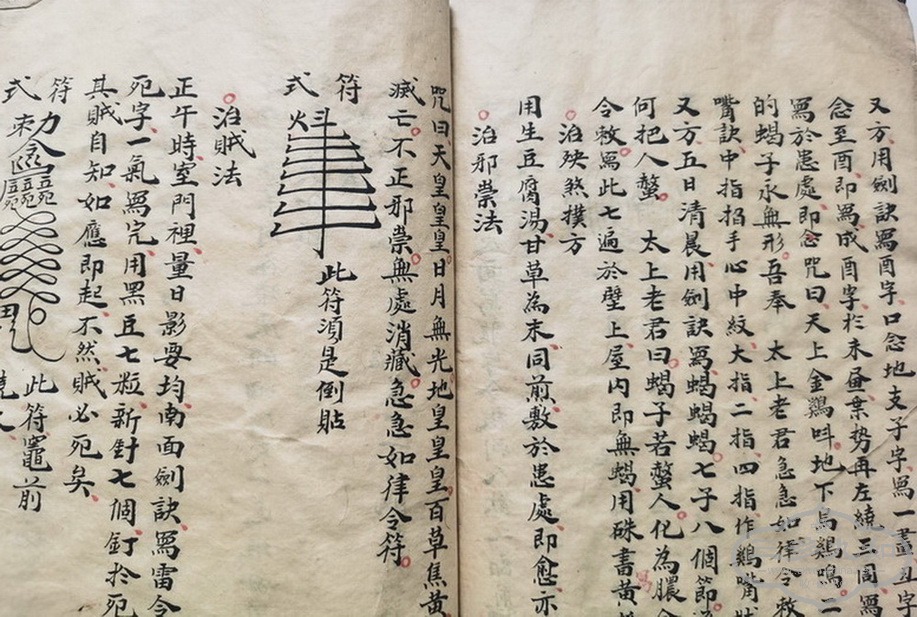 又方用劍訣寫酉字口念地支子字寫一畫丑字
念至酉即寫成酉字於未昼業勢再左繞三周寫
寫於患處即念咒曰天上金鷄呌地下烏鷄鳴二
的蝎子永無形吾奉 太上老君急急如律令敕
嘴訣中指掐手心中紋大指二指四指作鷄嘴
又方五日清晨用劍訣寫蝎蝎蝎七子八個節
何把人螫 太上老君曰蝎子若螫人化為膿
令敕寫此七遍於壁上屋内即無蝎用硃書黄
治殃煞撲方
用生豆腐湯甘草為末同煎敷於患處即愈亦
治邪祟法
咒曰天皇皇皇日月無光地皇皇皇百草焦黄
滅亡不正邪祟無處消藏急急如律令符
符式
此符須是倒貼
治賊法
正午時室門裡量日影要均南面劍訣寫雷令
死字一氣寫完用黑豆七粒新針七個釘於死
其賊自知如應即起不然賊必死矣
符式
此符竈前